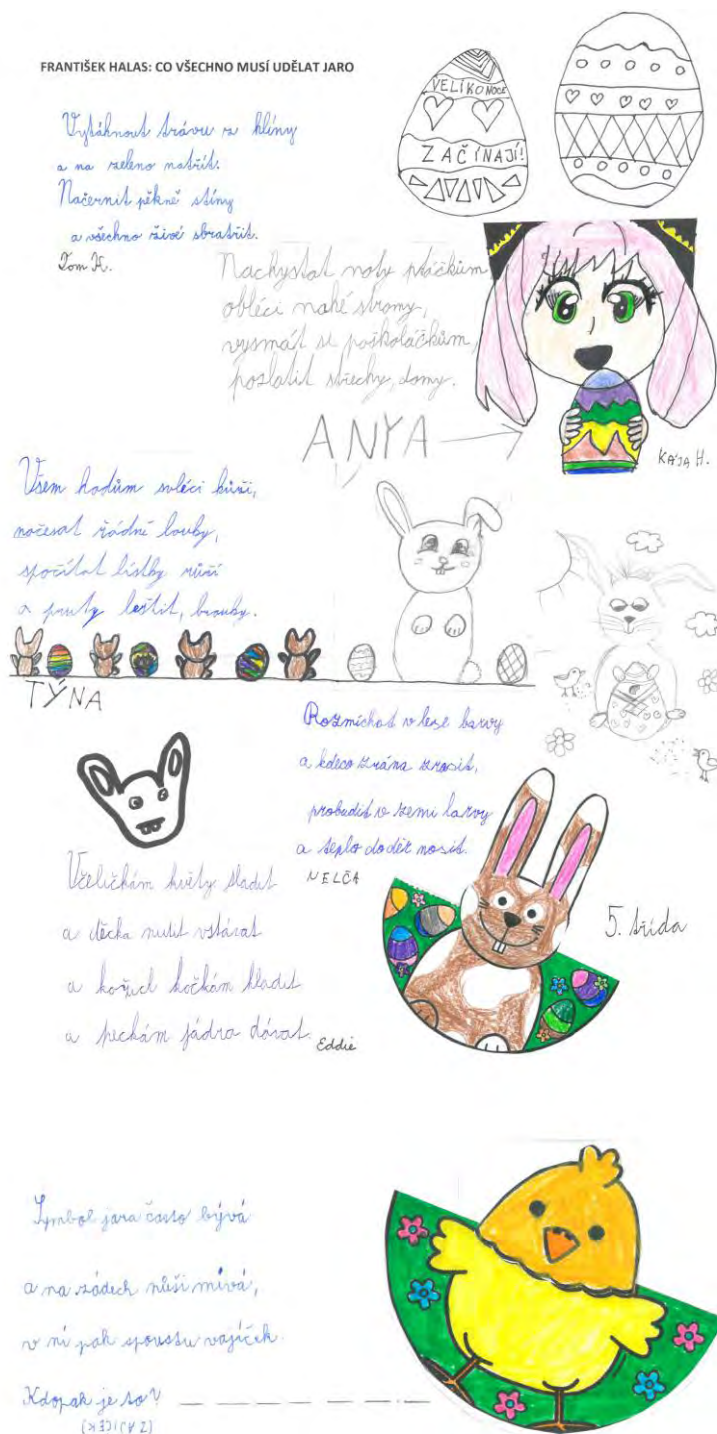 FRANTIŠEK HALAS: CO VŠECHNO MUSÍ UDĚLAT JARO
VELIKONOCE
ZAČÍNAJÍ!
Vytáhnout trávu z hlíny
a na zeleno natřít.
Načernit pěkně stíny
a všechno živé sbratřit.
Tom H.
Nachystat noty ptáčkům
obléci nahé stromy,
vysmát se poškoláčkům,
pozlatit střechy, domy.
ANYA
KÁJA H.
Všem hadům svléci kůži,
načesat řádně louky,
spočítat lístky růží
a pruty leštit, brouky.
TÝNA
Rozmíchat v lese barvy
a kdeco zrána zrosit,
probudit v zemi larvy
a teplo do děr nosit.
NELČA
Včeličkám květy sladit
a děcka nutit vstávat
a kožich kočkám hladit
a peckám jádra dávat.
Eddie
5. třída
Symbol jara často bývá
a na zádech nůši mívá,
v ní pak spoustu vajíček.
Kdopak je to?
(ZAJÍČEK)